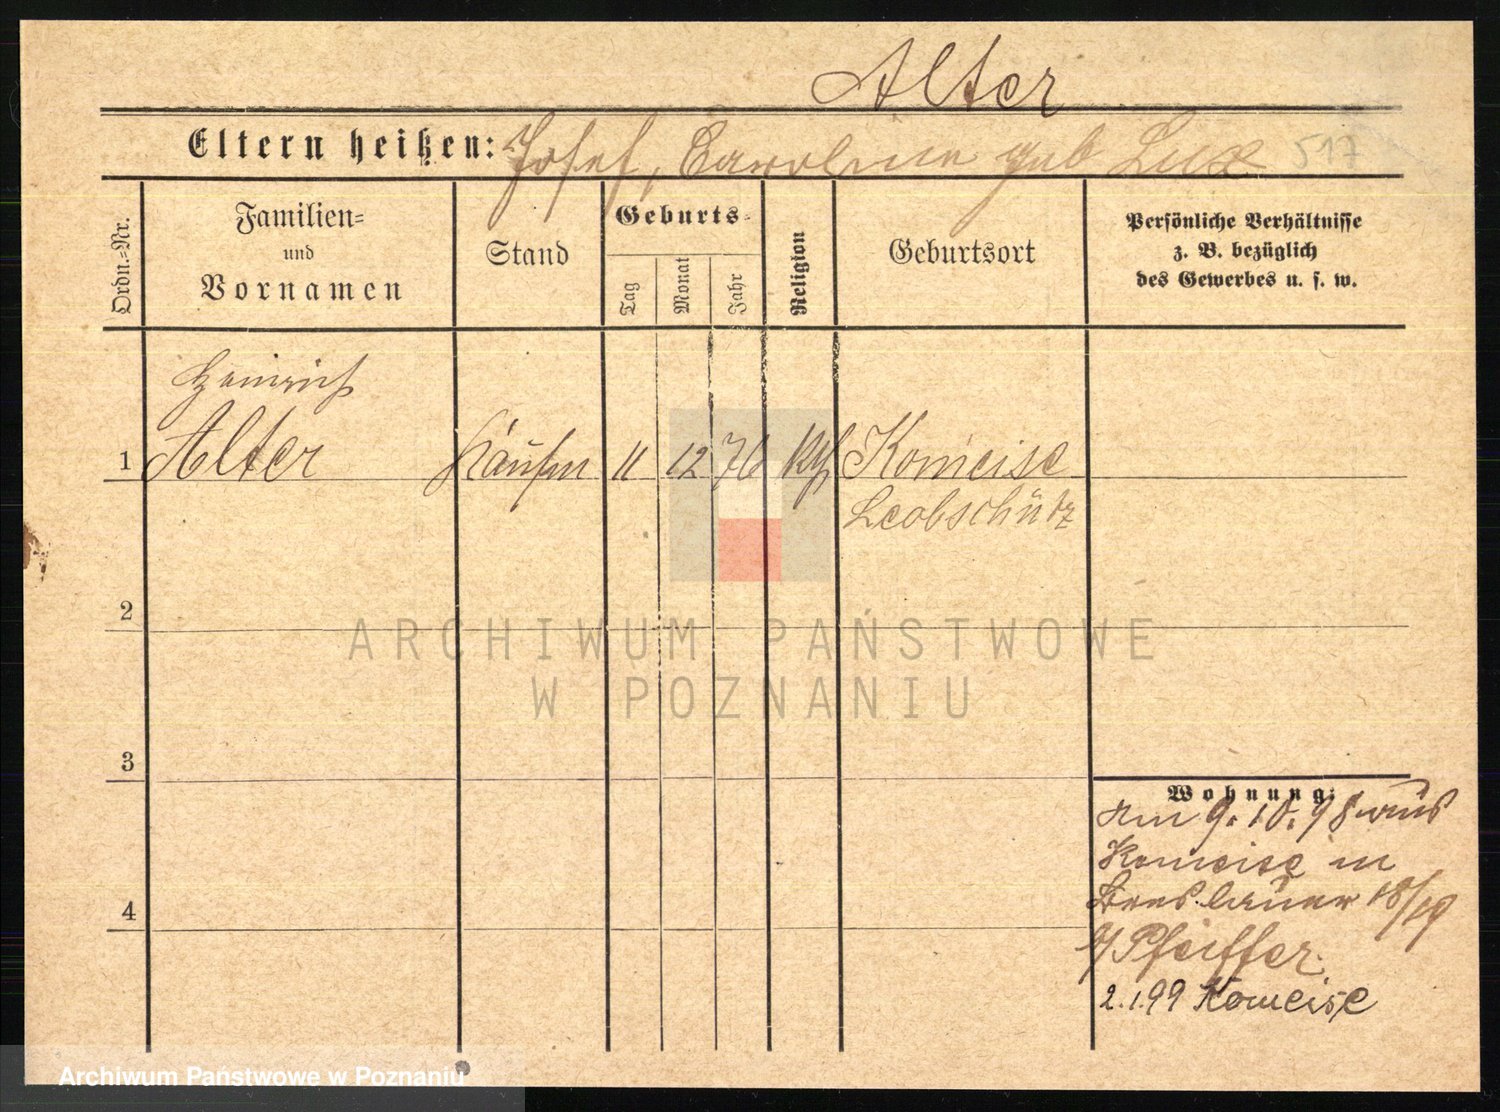 Alter
Eltern heißen: Josef, Caroline geb Lux 517
Ordn.=Nr.
Familien=
und
Vornamen
Stand
Geburts=
Tag
Monat
Jahr
Religion
Geburtsort
Persönliche Verhältnisse
z. B. bezüglich
des Gewerbes u. s. w.
Heinrich
1 Alter 11 12 76 Komeise
Leobschütz
2
ARCHIWUM PAŃSTWOWE
W POZNANIU
3
Wohnung:
am 9.10.98 aus
Komeise in
Breslauer 18/19
b/Pfeiffer.
4
2.1.99 Komeise
Archiwum Państwowe w Poznaniu